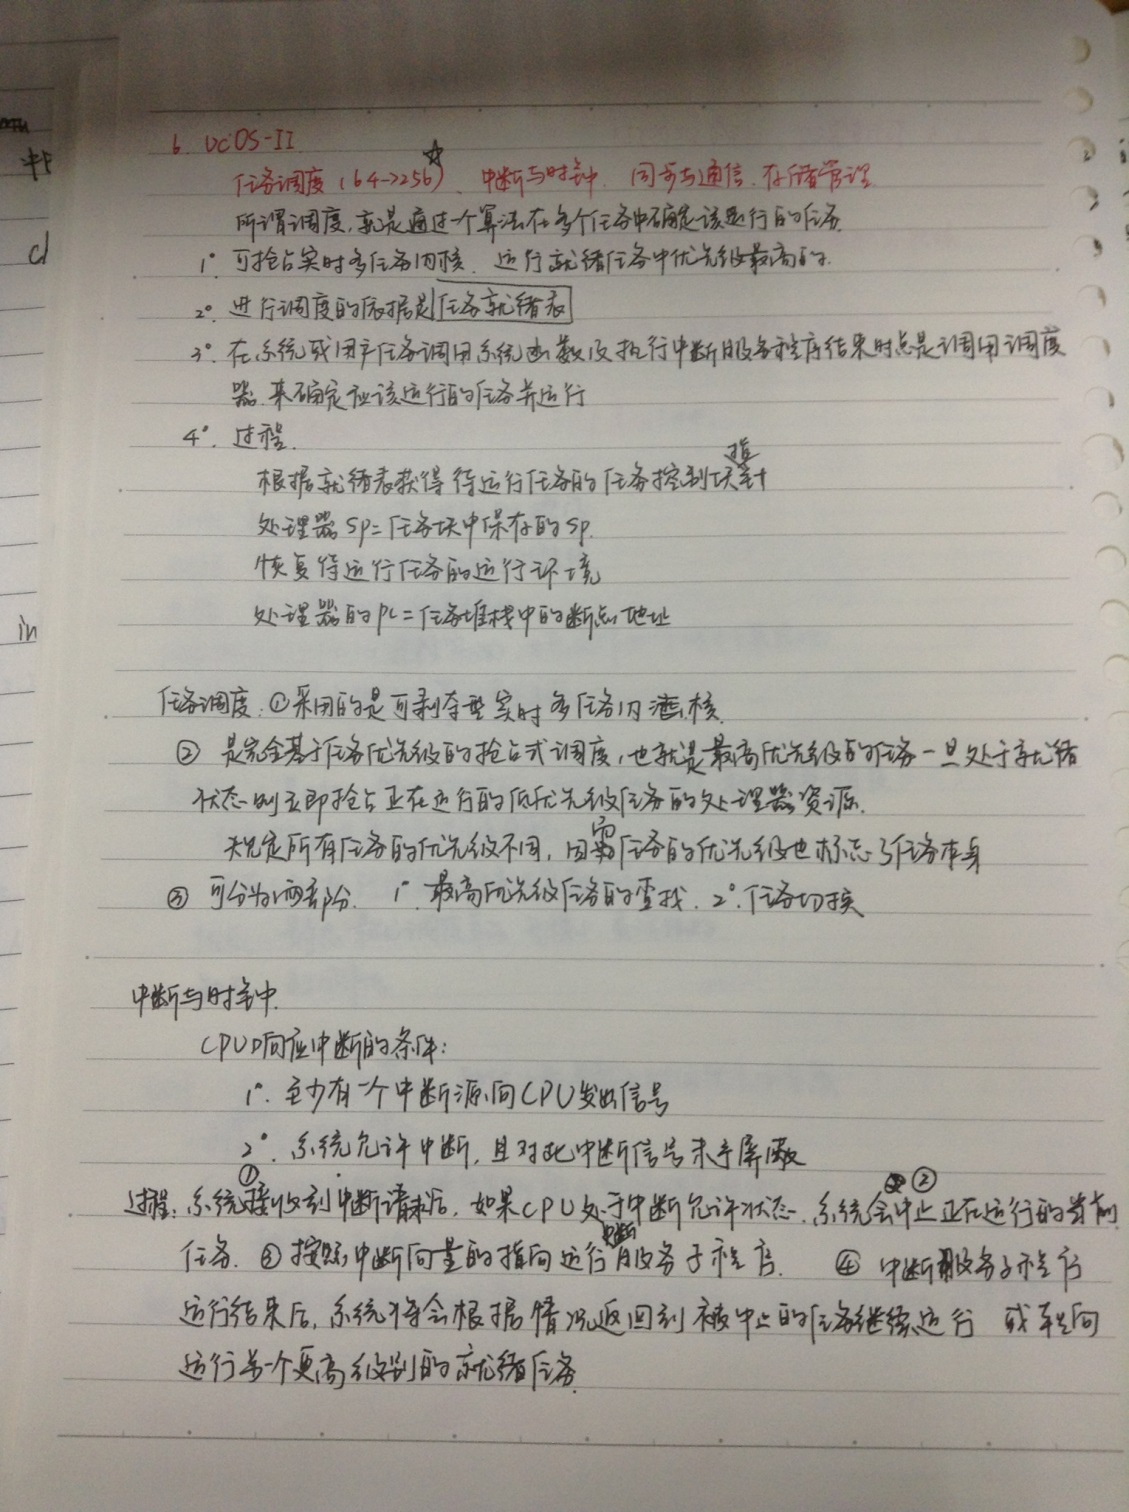 6. UCOS-II
任务调度(64->256)☆、中断与时钟、同步与通信、存储管理
所谓调度,就是通过一个算法在多个任务中确定该运行的任务.
1°. 可抢占实时多任务内核、运行就绪任务中优先级最高的.
2°. 进行调度的依据是任务就绪表
3°. 在系统或用户任务调用系统函数及执行中断服务程序结束时总是调用调度
器来确定应该运行的任务并运行
4°. 过程.
根据就绪表获得待运行任务的任务控制块指针
处理器SP=任务块中保存的SP.
恢复待运行任务的运行环境
处理器的PC=任务堆栈中的断点地址
任务调度:①采用的是可剥夺型实时多任务内核.
② 是完全基于任务优先级的抢占式调度,也就是最高优先级的任务一旦处于就绪
状态则立即抢占正在运行的低优先级任务的处理器资源.
规定所有任务的优先级不同,因需任务的优先级也标志了任务本身
③ 可分为两部份. 1°. 最高优先级任务的查找. 2°. 任务切换
中断与时钟.
CPU响应中断的条件:
1°. 至少有一个中断源向CPU发出信号
2°. 系统允许中断,且对此中断信号未予屏蔽
过程:①系统接收到中断请求后,如果CPU处于中断允许状态,②系统会中止正在运行的当前
任务. ③按照中断向量的指向运行中断服务子程序. ④ 中断服务子程序
运行结束后,系统将会根据情况返回到被中止的任务继续运行 或转向
运行另一个更高级别的就绪任务.
cl
in